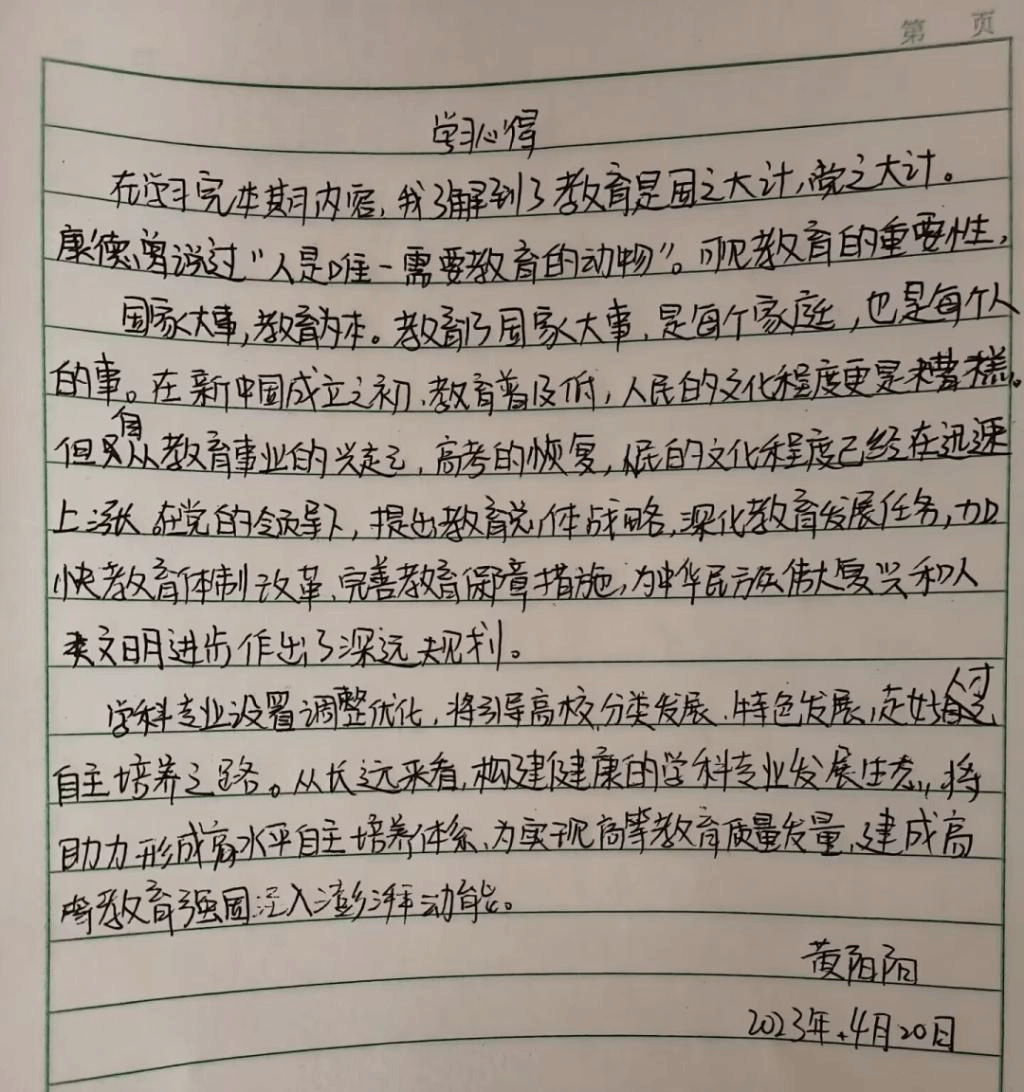 第 页
学习心得
在学习完本期内容,我了解到了教育是国之大计,党之大计。
康德曾说过“人是唯一需要教育的动物”。可见教育的重要性,
国家大事,教育为本。教育乃国家大事,是每个家庭,也是每个人
的事。在新中国成立之初,教育普及低,人民的文化程度更是糟糕。
但自从教育事业的兴起,高考的恢复,人民的文化程度已经在迅速
上涨 在党的领导下,提出教育总体战略,深化教育发展任务,加
快教育体制改革、完善教育保障措施,为中华民族伟大复兴和人
类文明进步作出了深远规划。
学科专业设置调整优化,将引导高校分类发展、特色发展,走好人才
自主培养之路。从长远来看,构建健康的学科专业发展生态,将
助力形成高水平自主培养体系、为实现高等教育质量发量,建成高
等教育强国注入澎湃动能。
黄阳阳
2023年.4月20日